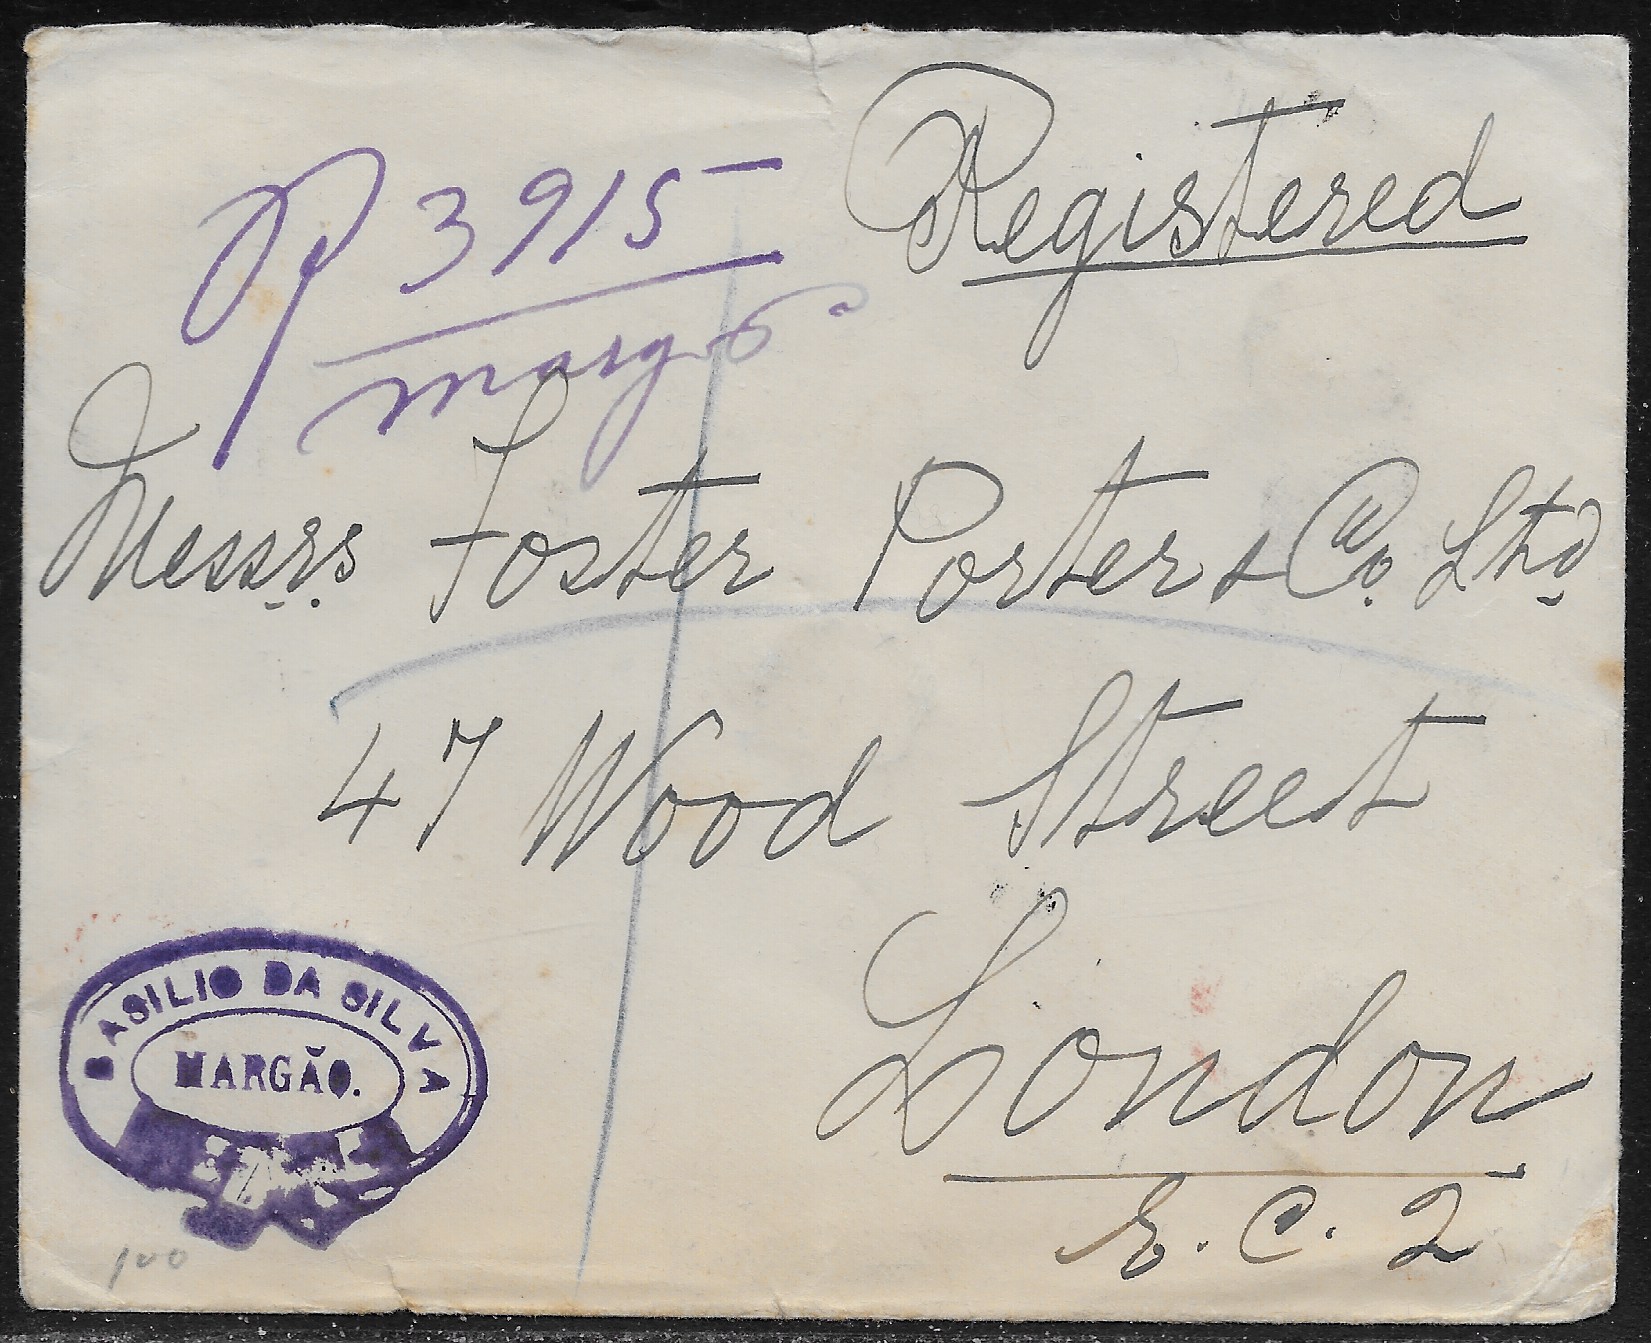 R 3915
Margão
Registered
Messrs. Foster Porter & Co. Ltd
47 Wood Street
London
E. C. 2
BASILIO DA SILVA
MARGÃO.
100